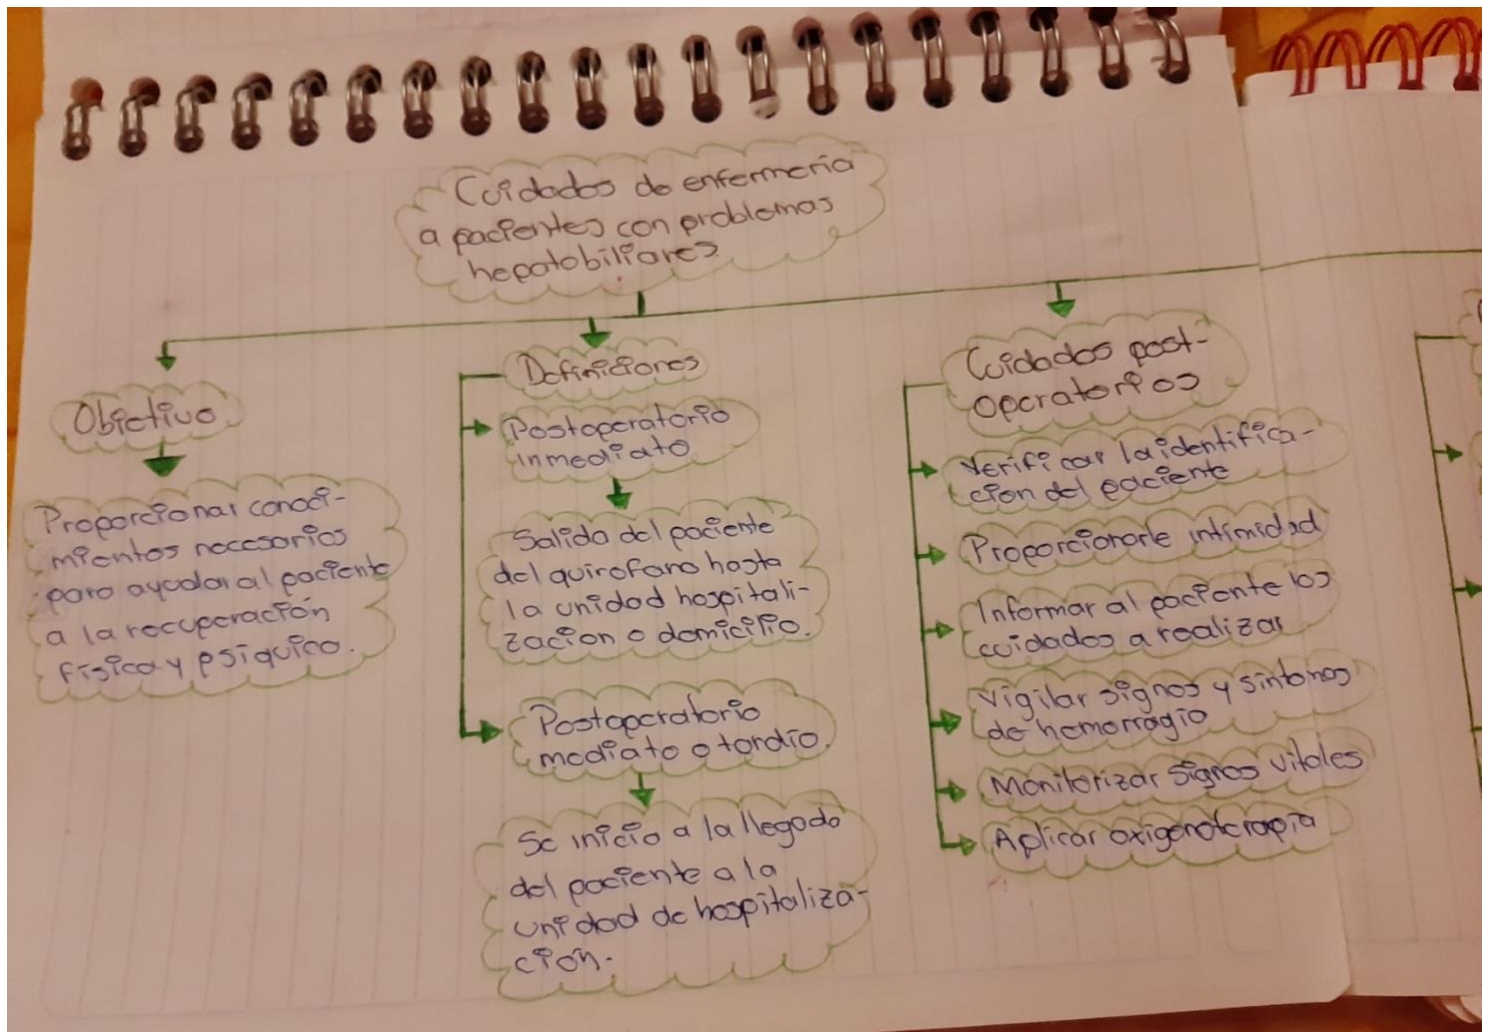 Cuidados de enfermería
a pacientes con problemas
hepatobiliares
Objetivo
Proporcionar conoci-
mientos necesarios
para ayudar al paciente
a la recuperación
física y psíquica.
Definiciones
Postoperatorio
inmediato
Salida del paciente
del quirofano hasta
la unidad hospitali-
zacion o domicilio.
Postoperatorio
mediato o tardío.
Se inicia a la llegada
del paciente a la
unidad de hospitaliza-
ción.
Cuidados post-
operatorios
Verificar la identifica-
cion del paciente
Proporcionarle intimidad
Informar al paciente los
cuidados a realizar
Vigilar signos y sintomas
de hemorragia
Monitorizar signos vitales
Aplicar oxigenoterapia